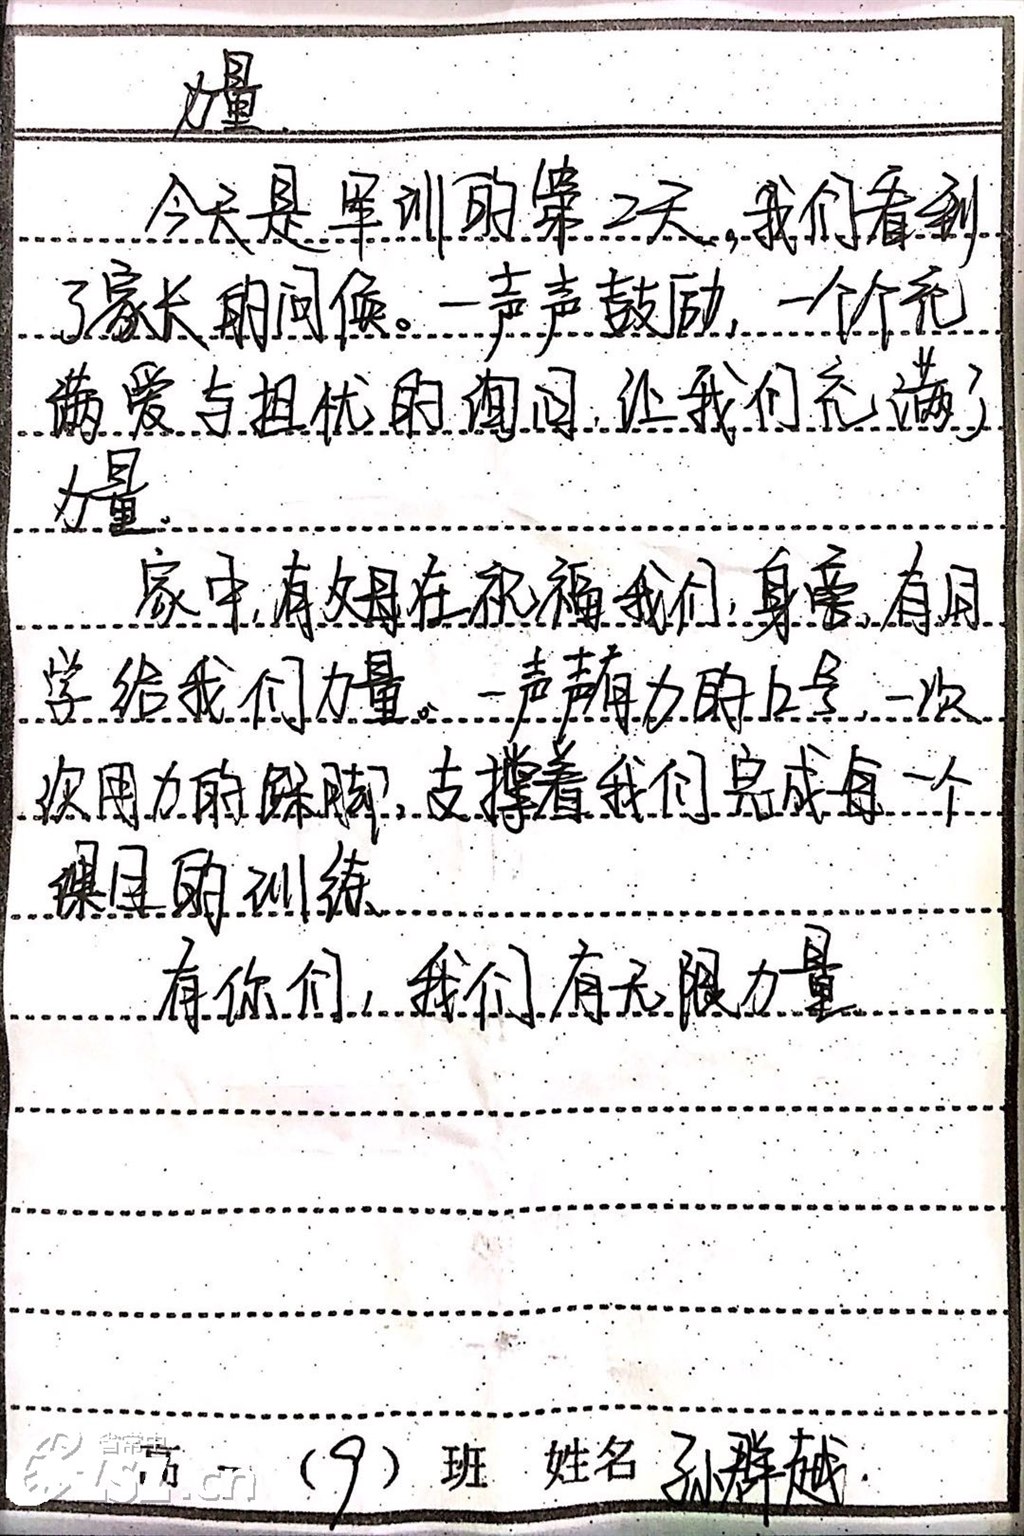 力量.
今天是军训的第2天,我们看到
了家长的问候。一声声鼓励,一个个充
满爱与担忧的询问,让我们充满了
力量.
家中,有父母在祝福我们,身旁,有同
学给我们力量。一声声有力的口号,一次
次用力的跺脚,支撑着我们完成每一个
课目的训练.
有你们,我们有无限力量.
高一(9)班 姓名 孙群越.
省常中